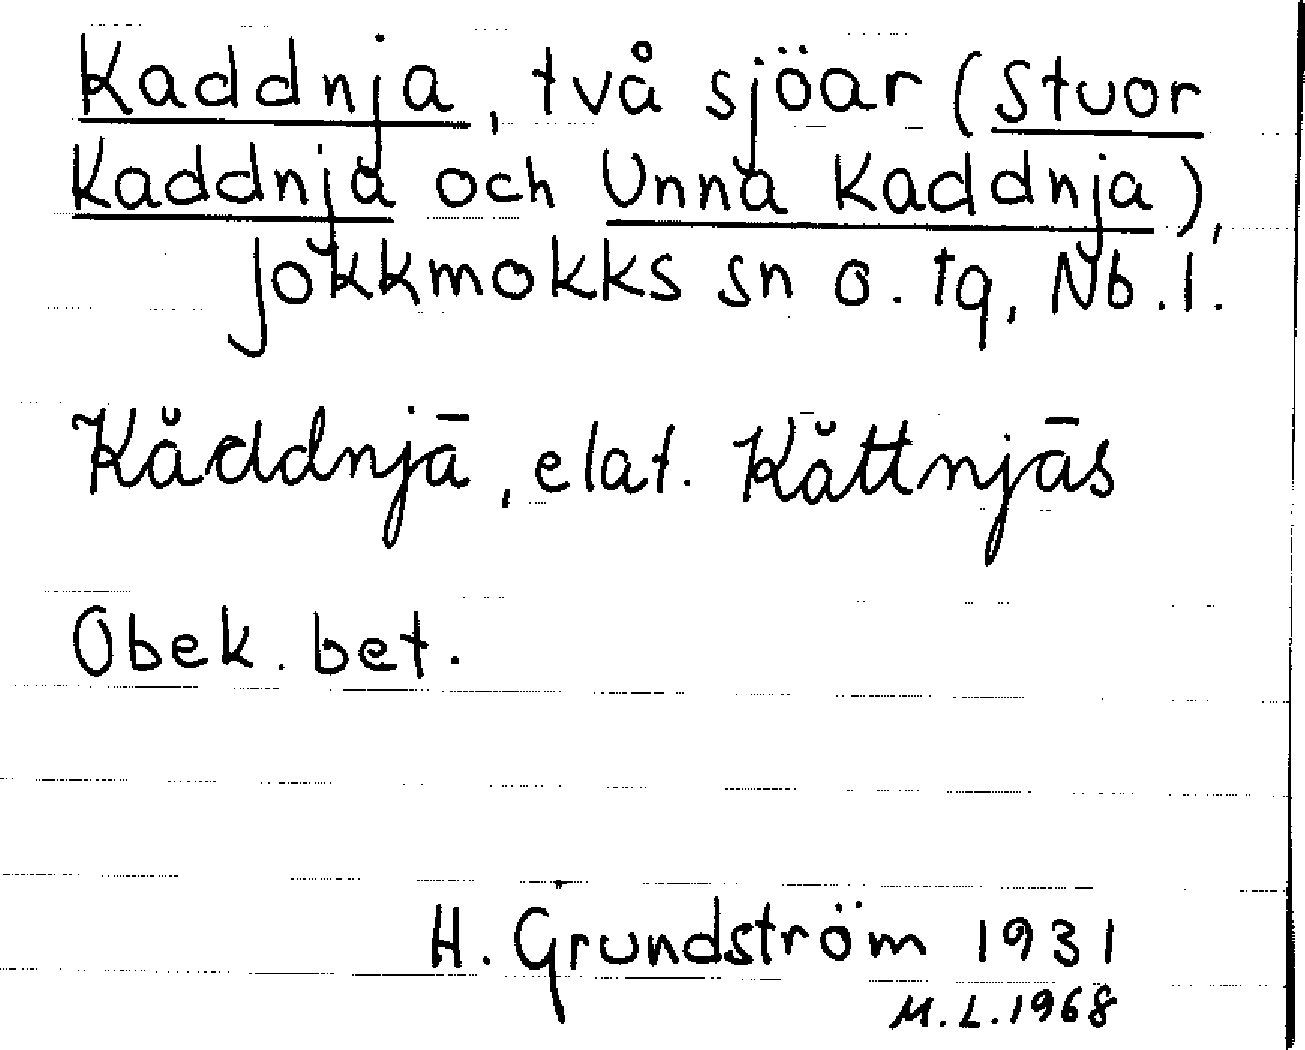 Kaddnja, två sjöar (Stuor
Kaddnja och Unna Kaddnja),
Jokkmokks sn o. tg, Nb. l.
Kăddnjā, elat. Kăttnjās
Obek. bet.
H. Grundström 1931
M.L. 1968